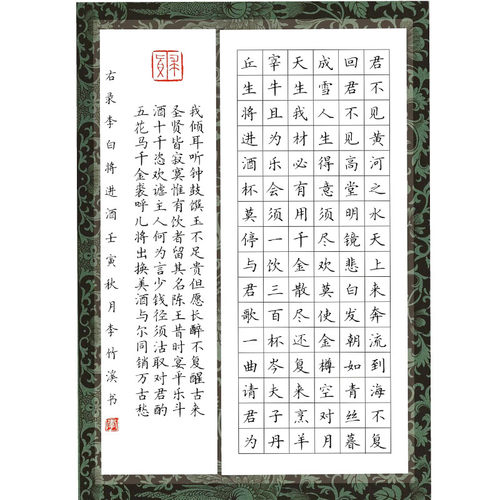 君不见黄河之水天上来奔流到海不复
回君不见高堂明镜悲白发朝如青丝暮
成雪人生得意须尽欢莫使金樽空对月
天生我材必有用千金散尽还复来烹羊
宰牛且为乐会须一饮三百杯岑夫子丹
丘生将进酒杯莫停与君歌一曲请君为
我倾耳听钟鼓馔玉不足贵但愿长醉不复醒古来
圣贤皆寂寞惟有饮者留其名陈王昔时宴平乐斗
酒十千恣欢谑主人何为言少钱径须沽取对君酌
五花马千金裘呼儿将出换美酒与尔同销万古愁
右录李白将进酒壬寅秋月李竹溪书